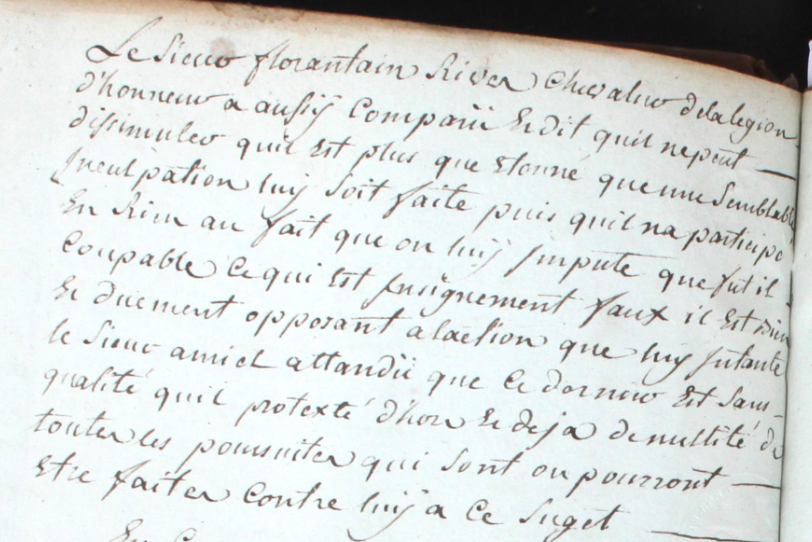 Le Sieur florantain River Chevalier dela legion
d'honneur a aussÿ Comparü Et dit quil nepeut
dissimuler quil Est plus que Etonné que une Semblable
Inculpation luÿ Soit faite puis quil na participé
En Rien au fait que on luÿ Impute que fut il
Coupable Ce qui Est Insignement faux il Est bien
Et duement opposant alaction que luÿ Intante
le Sieur amiel attandü que Ce dernier Est Sans
qualité quil protexté d'hors Et deja denullité de
toutes les poursuites qui Sont ou pourront
Etre faites Contre luÿ a Ce Suget
En